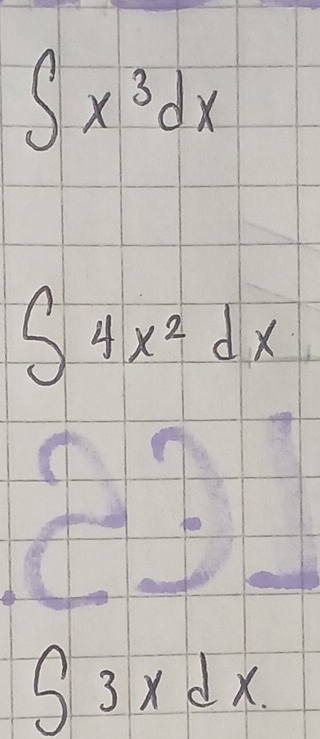 ∫ x³ dx
∫ 4x² dx
∫ 3x dx.